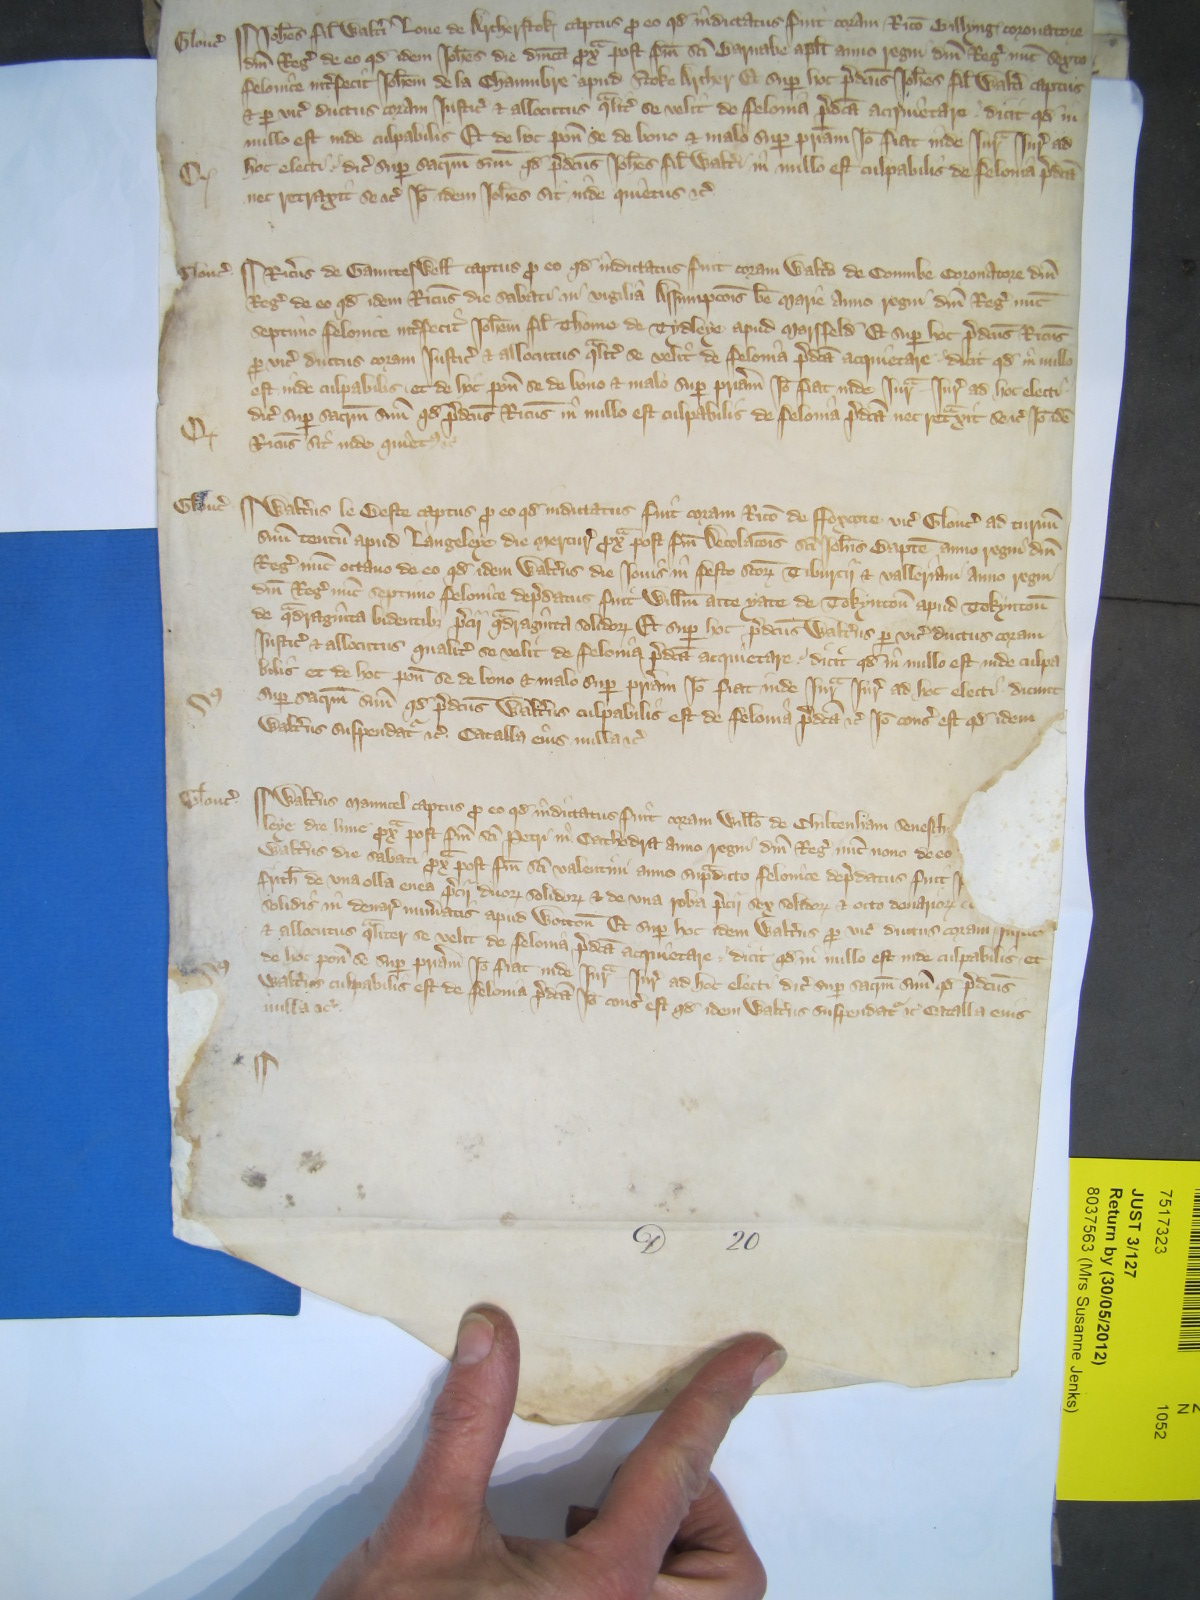 Glouc̃ Joh̃es fil̃ Walt̃i Loue de Archerstok captus p eo qd indictatus fuit coram Ric̃o Billyng coronatore
dñi Reg̃ de eo qd idem Joh̃es die dñica px̃ post fm̃ sc̃i Barnabe apl̃i anno regni dñi Reg̃ nũc sexto
felonice int̃fecit Joh̃em de la Chaumbre apud Stoke Archer Et sup hoc p̃dc̃us Joh̃es fil̃ Walt̃i captus
& p vic̃ ductus coram Justic̃ & allocutus qalit̃ se velit de felonia p̃dc̃a acquietare dicit qd in
nullo est inde culpabilis Et de hoc pon̄ se de bono & malo sup p̃riam Jo fiat inde Jur̃ Jur̃ ad
hoc electi dic̃ sup sacr̃m suũ qd p̃dc̃us Joh̃es fil̃ Walt̃i in nullo est culpabilis de felonia p̃dc̃a
nec retraxit se &c̃ Jo idem Joh̃es sit inde quietus &c̃
Glouc̃ Ric̃us de captus p eo qd indictatus fuit coram Walt̃o de Coumbe Coronatore dñi
Reg̃ de eo qd idem Ric̃us die sabati in vigilia Assumpcõis be Marie Anno regni dñi Reg̃ nũc
septimo felonice int̃fecit Joh̃em fil̃ Thome de Tydleye apud Marsfeld Et sup hoc p̃dc̃us Ric̃us
p vic̃ ductus coram Justic̃ & allocutus qalit̃ se velit de felonia p̃dc̃a acquietare dicit qd in nullo
est inde culpabilis et de hoc pon̄ se de bono & malo sup p̃riam Jo fiat inde Jur̃ Jur̃ ad hoc electi
dic̃ sup sacr̃m suũ qd p̃dc̃us Ric̃us in nullo est culpabilis de felonia p̃dc̃a nec ret̃xit se &c̃ Jo idẽ
Ric̃us sit inde quiet⁹ &c̃
Glouc̃ Walt̃us le Beste captus p eo qd indictatus fuit coram Ric̃o de ffoxcote vic̃ Glouc̃ ad turnũ
suũ tentũ apud Langeleye die mercur̃ px̃ post fm̃ Decolacõis sc̃i Joh̃is Bapt̃e anno regni dñi
Reg̃ nũc octauo de eo qd idem Walt̃us die Jouis in festo sc̃or̃ Tiburcij & valleriani anno regni
dñi Reg̃ nũc septimo felonice dep̃datus fuit Will̃m atte yate de Tokynton̄ apud Tokynton̄
de qadraginta bidentibȝ p̃cij qadraginta solidoꝝ Et sup hoc p̃dc̃us Walt̃us p vic̃ ductus coram
Justic̃ & allocutus qualit̃ se velit de felonia p̃dc̃a acquietare dicit qd in nullo est inde culpa
bilis et de hoc pon̄ se de bono & malo sup p̃riam Jo fiat inde Jur̃ Jur̃ ad hoc electi dicunt
sup sacr̃m suũ qd p̃dc̃us Walt̃us culpabilis est de felonia p̃dc̃a &c̃ Jo cons̃ est qd idem
S⁹ Walt̃us suspendat̃ &c̃ Catalla eius nulla &c̃
Glouc̃ Walt̃us Mauncel captus p eo qd indictatus fuit coram Will̃o de Chiltenham Senesch
leye die lune px̃ post fm̃ sc̃i Petri in Cathedra anno regni dñi Reg̃ nũc nono de eo
Walt̃us die sabati px̃ post fm̃ sc̃i valentini anno sup̃dicto felonice dep̃datus fuit
de vna olla enea p̃cij duoꝝ solidoꝝ & de vna roba p̃cij sex solidoꝝ & octo denarioꝝ
solidis in denar̃ num̃atis apud Wotton̄ Et sup hoc idem Walt̃us p vic̃ ductus coram Justic̃
& allocutus qaliter se velit de felonia p̃dc̃a acquietare dicit qd in nullo est inde culpabilis et
de hoc pon̄ se sup p̃riam Jo fiat inde Jur̃ Jur̃ ad hoc electi dic̃ sup sacr̃m suũ qd p̃dc̃us
S⁹ Walt̃us culpabilis est de felonia p̃dc̃a Jo cons̃ est qd idem Walt̃us suspendat̃ &c̃ Catalla eius
nulla &c̃
20
7517323
JUST 3/127
Return by (30/05/2012)
8037563 (Mrs Susanne Jenks)
1052